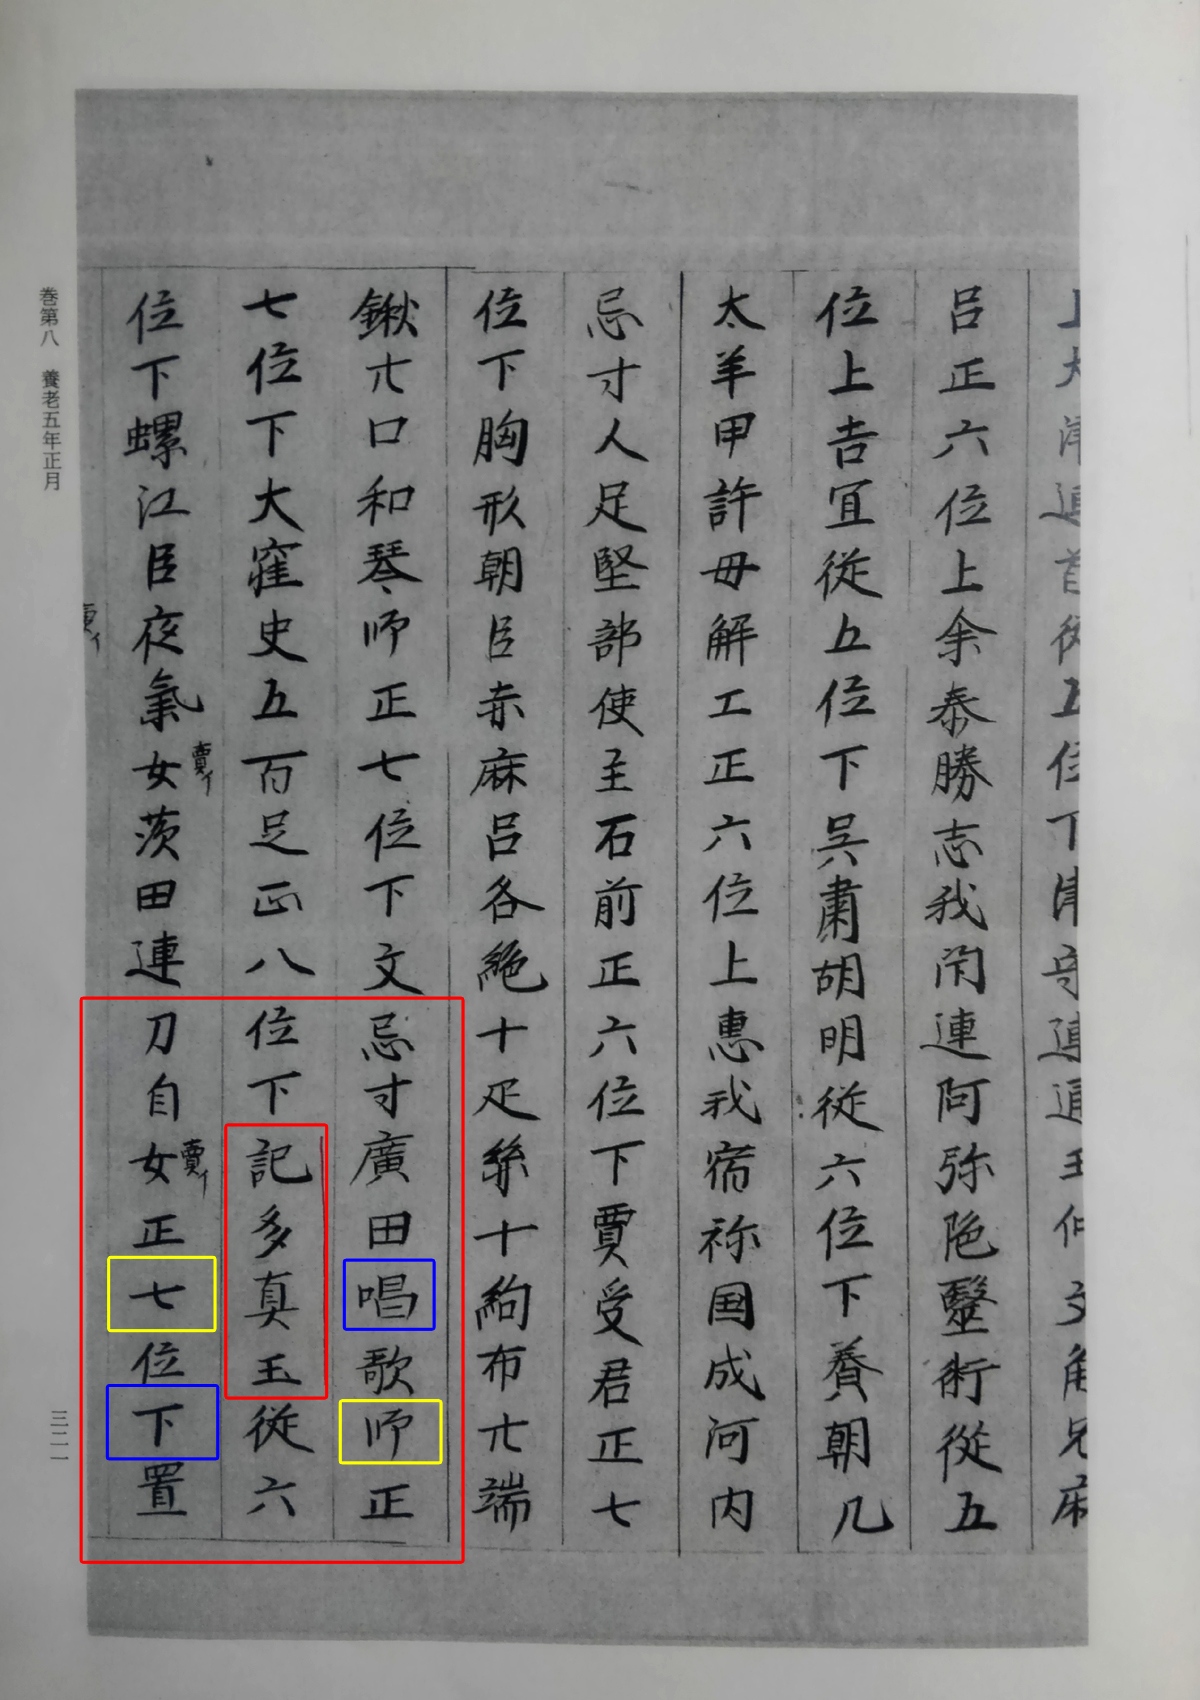 呂正六位上余秦勝志我閇連阿弥陁毉術從五
位上吉冝從五位下吳肅胡明從六位下賛朝几
太羊甲許毋解工正六位上惠我宿祢国成河内
忌寸人足堅部使主石前正六位下賈受君正七
位下胸形朝臣赤麻呂各絁十疋絲十絇布廿端
鍬廿口和琴师正七位下文忌寸廣田唱歌师正
七位下大窪史五百足正八位下記多真玉從六
位下螺江臣夜氣女茨田連刀自女正七位下置
卷第八 養老五年正月
三二一